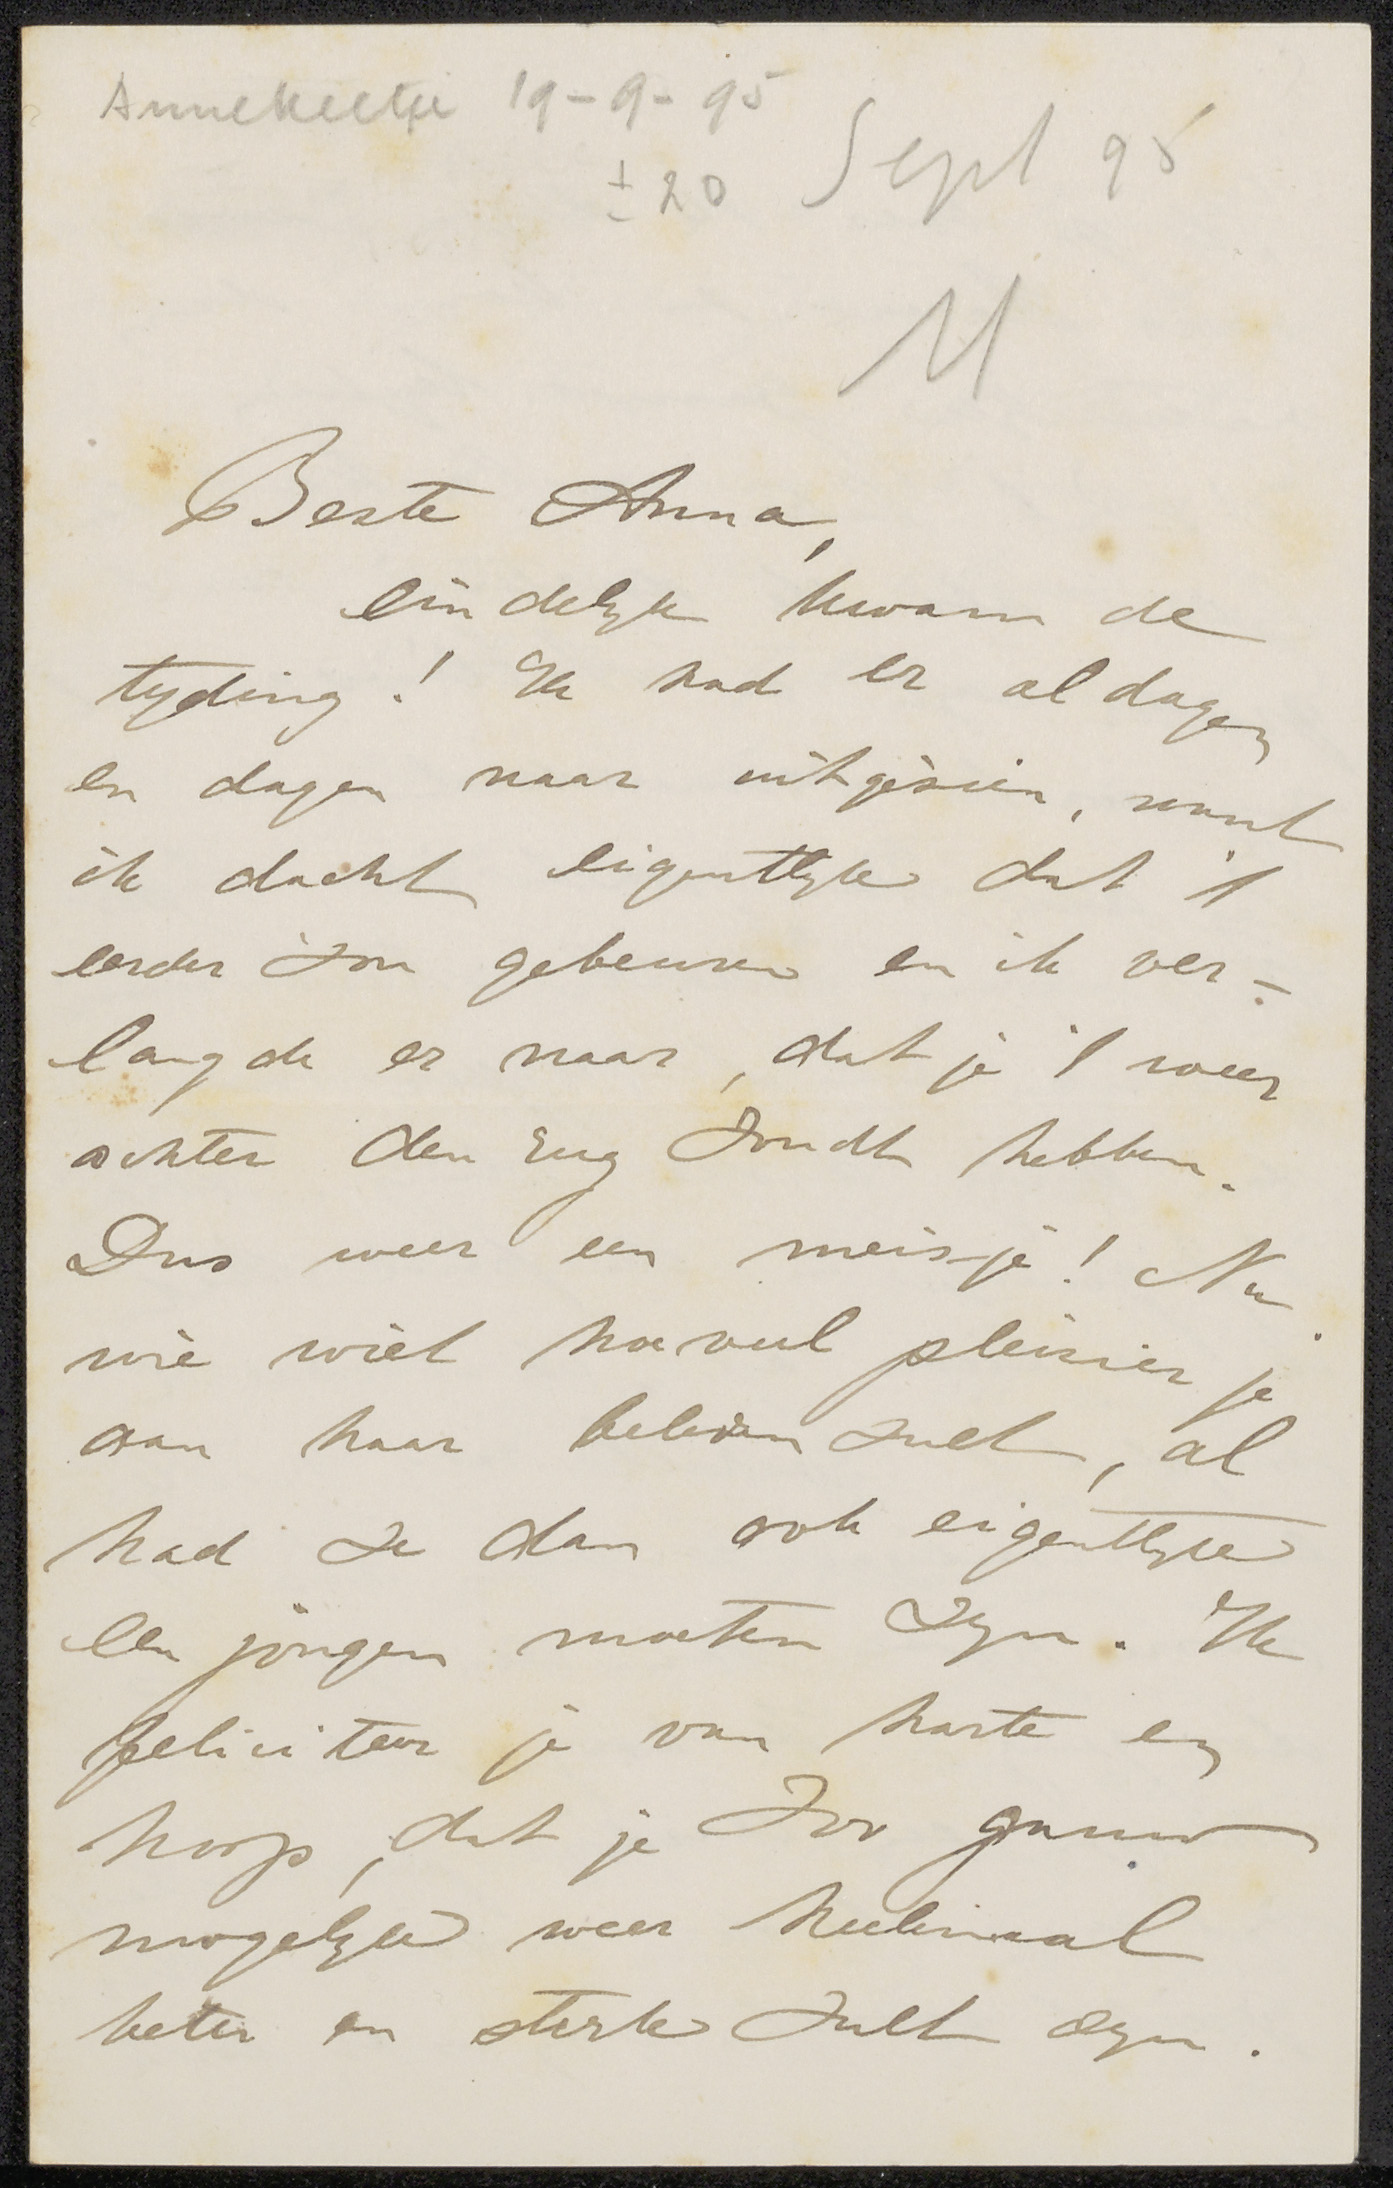 Annekeetje 19-9-95
± 20 Sept 95
M
Beste Anna,
eindelyk kwam de
tyding! Ik had er al dagen
en dagen naar uitgezien, want
ik dacht eigentlyk dat 't
eerder zou gebeuren en ik ver-
langde er naar, dat je 't weer
achter den rug zoudt hebben.
Dus weer een meisje! Nu
wie wiet hoeveel pleizier je
aan haar beleven zult, al
had ze dan ook eigentlyk
een jongen moeten zyn. Ik
feliciteer je van harte en
hoop, dat je zoo gauw
mogelyk weer heelemaal
beter en sterk zult zyn.